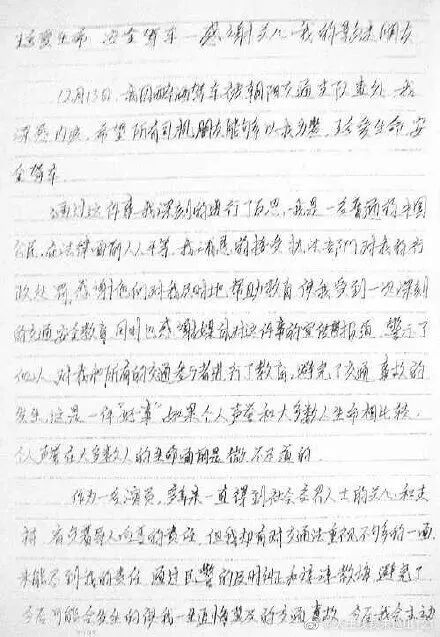 珍爱生命 安全驾车 — 感谢关心我的影迷朋友
12月13日,我因醉酒驾车被朝阳交通支队查处,我
深感内疚,希望所有司机朋友能够以我为鉴,珍爱生命,安
全驾车。
通过这件事我深刻的进行了反思,我是一名普通的中国
公民,在法律面前人人平等,我心甘情愿的接受执法部门对我的行
政处罚,感谢他们对我及时地帮助教育 使我受到一次深刻
的交通安全教育,同时也感谢媒体对这件事的宣传报道,警示了
他人,对我和所有的交通参与者进行了教育,避免了交通事故的
发生,这是一件"好事",如果个人声誉和大多数人生命相比较,
个人声誉在大多数人的生命面前是微不足道的
作为一名演员,多年来一直得到社会各界人士的关心和支
持,有着领导人的责任,但我却有对交通法重视不够的一面,
未能尽到我的责任,通过民警的及时纠正和谆谆教诲,避免了
今后可能会发生的使我一生追悔莫及的交通事故,今后我会主动